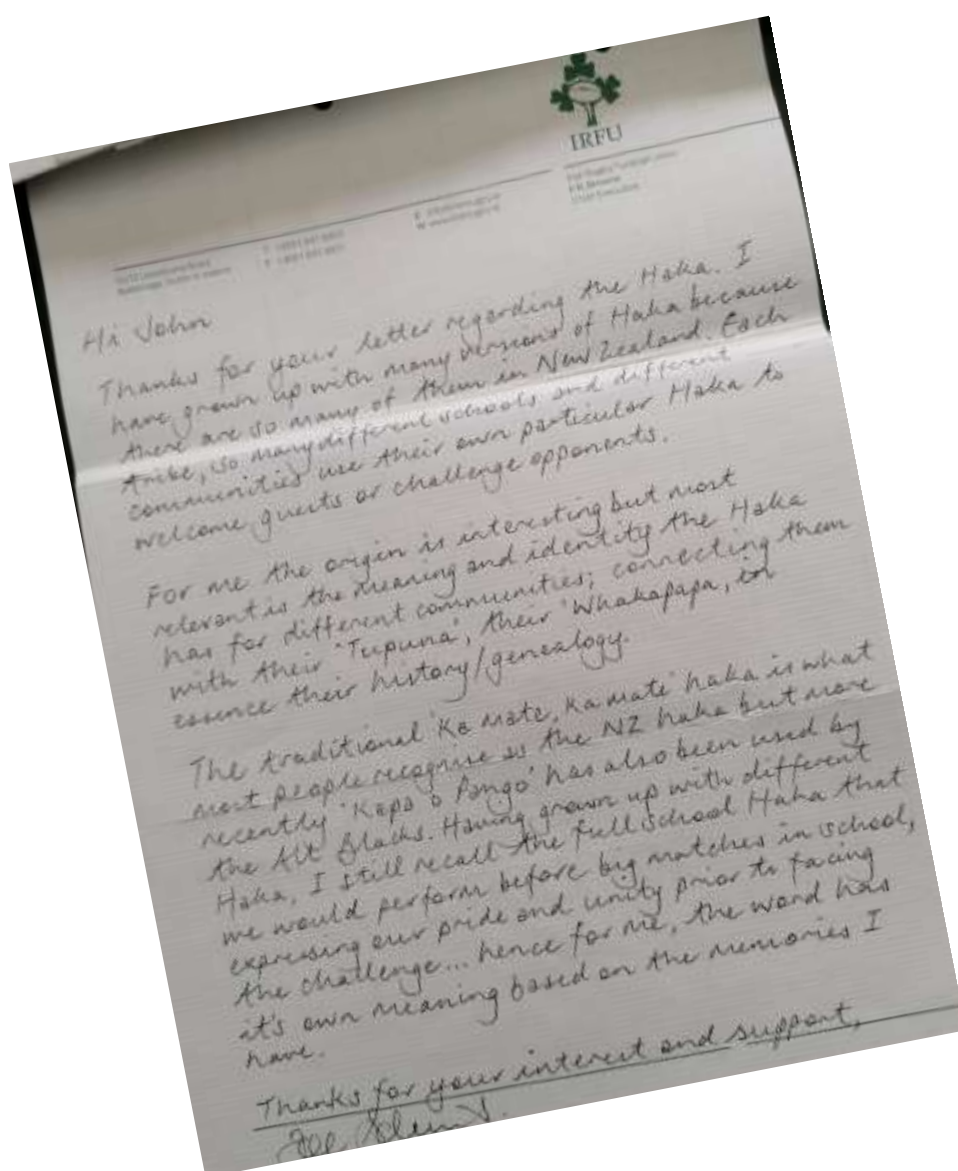 IRFU
Hi John
Thanks for your letter regarding the Haka. I
have grown up with many versions of Haka because
there are so many of them in New Zealand. Each
tribe, so many different schools and different
communities use their own particular Haka to
welcome guests or challenge opponents.
For me the origin is interesting but most
relevant is the meaning and identity the Haka
has for different communities; connecting them
with their 'Tupuna', their 'Whakapapa, in
essence their history/genealogy.
The traditional 'Ka mate, Ka mate' haka is what
most people recognise as the NZ haka but more
recently 'Kapa o Pango' has also been used by
the All Blacks. Having grown up with different
Haka, I still recall the full school Haka that
we would perform before big matches in school,
expressing our pride and unity prior to facing
the challenge... hence for me, the word has
it's own meaning based on the memories I
have.
Thanks for your interest and support,
Joe Schmidt